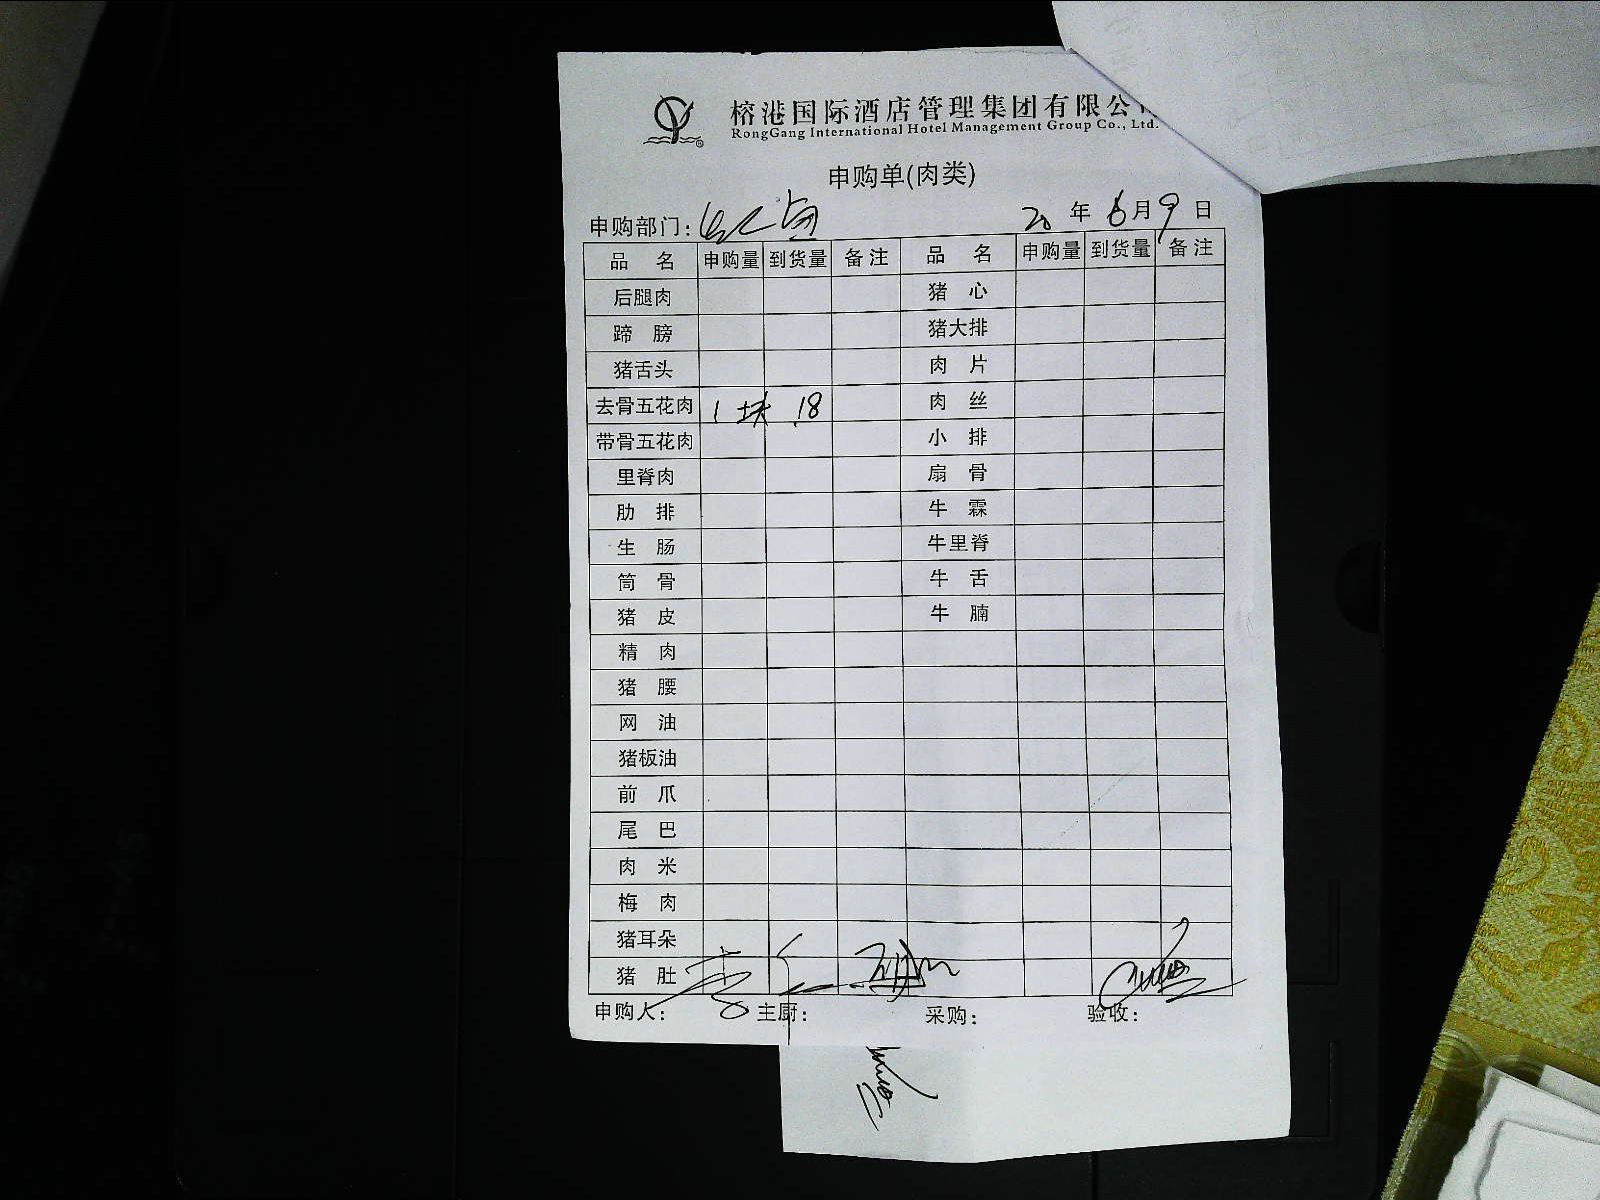 榕港国际酒店管理集团有限公
RongGang International Hotel Management Group Co., Ltd.
申购单(肉类)
申购部门: 20 年 6 月 9 日
品名 申购量 到货量 备注 品名 申购量 到货量 备注
后腿肉 猪心
蹄膀 猪大排
猪舌头 肉片
去骨五花肉 1块 18 肉丝
带骨五花肉 小排
里脊肉 扇骨
肋排 牛霖
生肠 牛里脊
筒骨 牛舌
猪皮 牛腩
精肉
猪腰
网油
猪板油
前爪
尾巴
肉米
梅肉
猪耳朵
猪肚
申购人: 主厨: 采购: 验收: